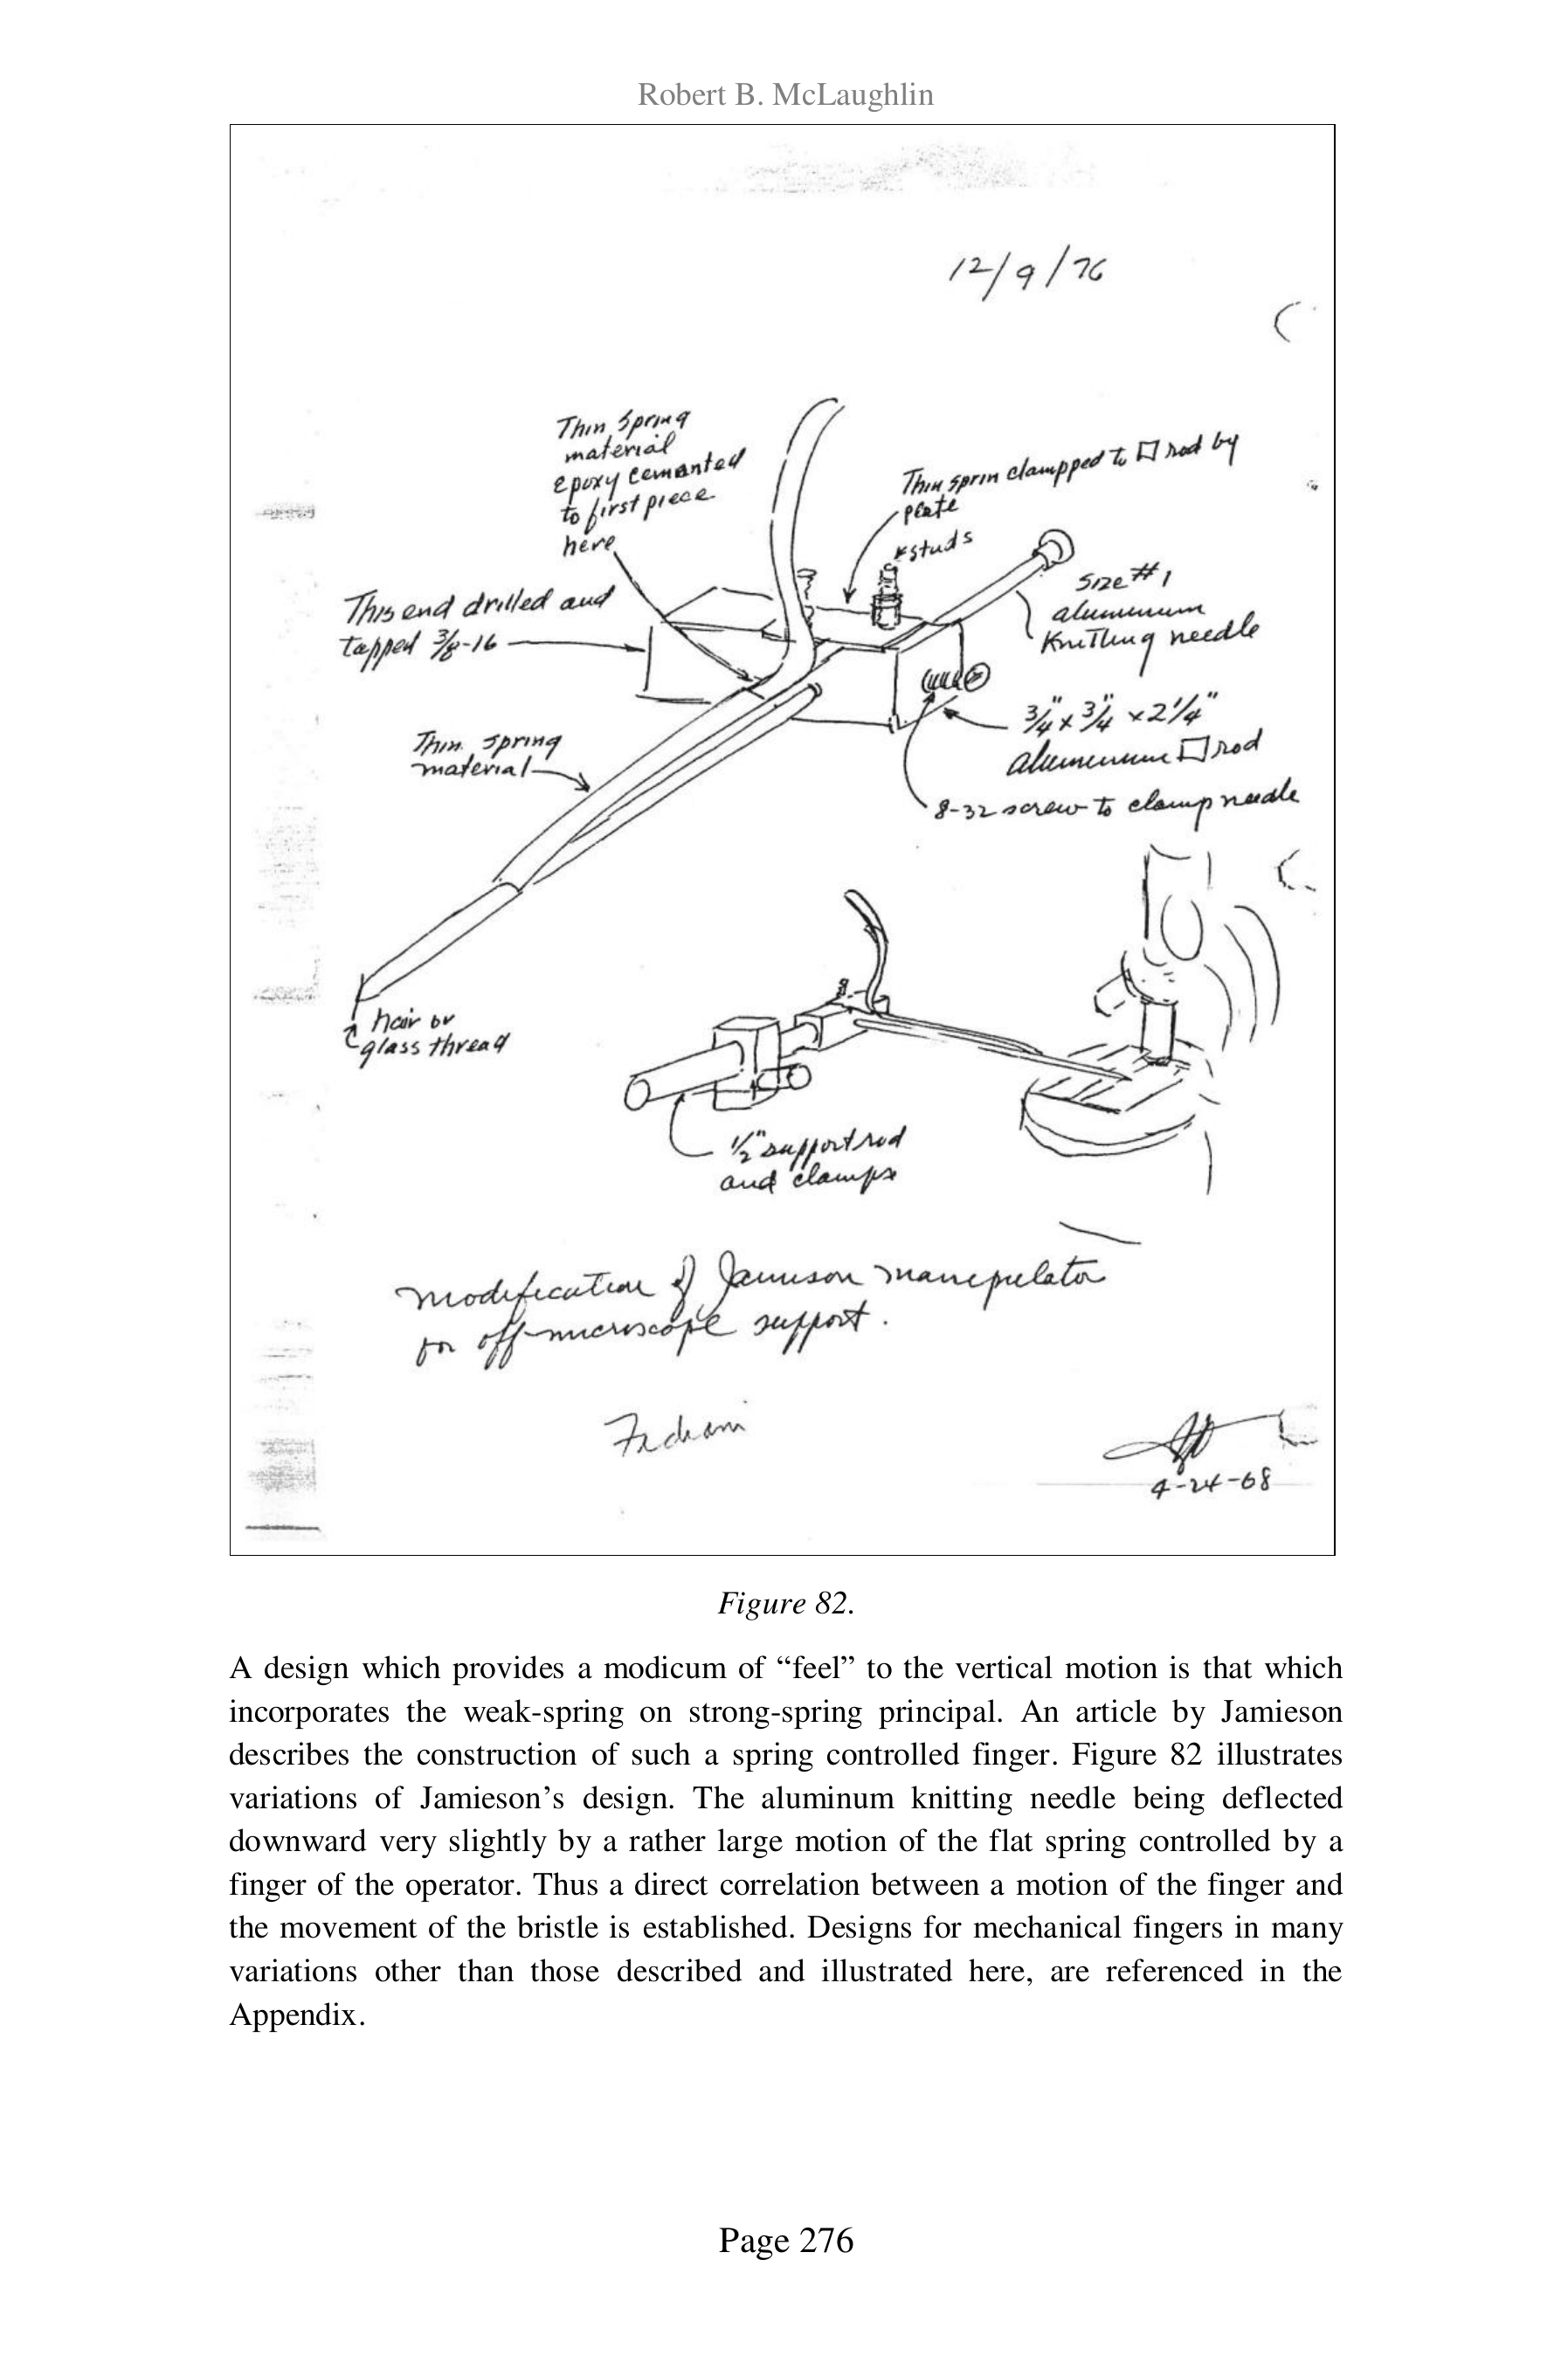 Robert B. McLaughlin
12/9/76
Thin Spring
material
epoxy cemented
to first piece
here
Thin sprin clampped to □ rod by
plate
+studs
This end drilled and
tapped 3/8-16
Size #1
alumunum
Knitting needle
3/4" x 3/4" x 2 1/4"
alumunum □ rod
8-32 screw to clamp needle
Thin spring
material
hair or
glass thread
1/2" support rod
and clamps
modification of Jamison manipulator
for off-microscope support.
4-24-68
Figure 82.
A design which provides a modicum of “feel” to the vertical motion is that which
incorporates the weak-spring on strong-spring principal. An article by Jamieson
describes the construction of such a spring controlled finger. Figure 82 illustrates
variations of Jamieson’s design. The aluminum knitting needle being deflected
downward very slightly by a rather large motion of the flat spring controlled by a
finger of the operator. Thus a direct correlation between a motion of the finger and
the movement of the bristle is established. Designs for mechanical fingers in many
variations other than those described and illustrated here, are referenced in the
Appendix.
Page 276